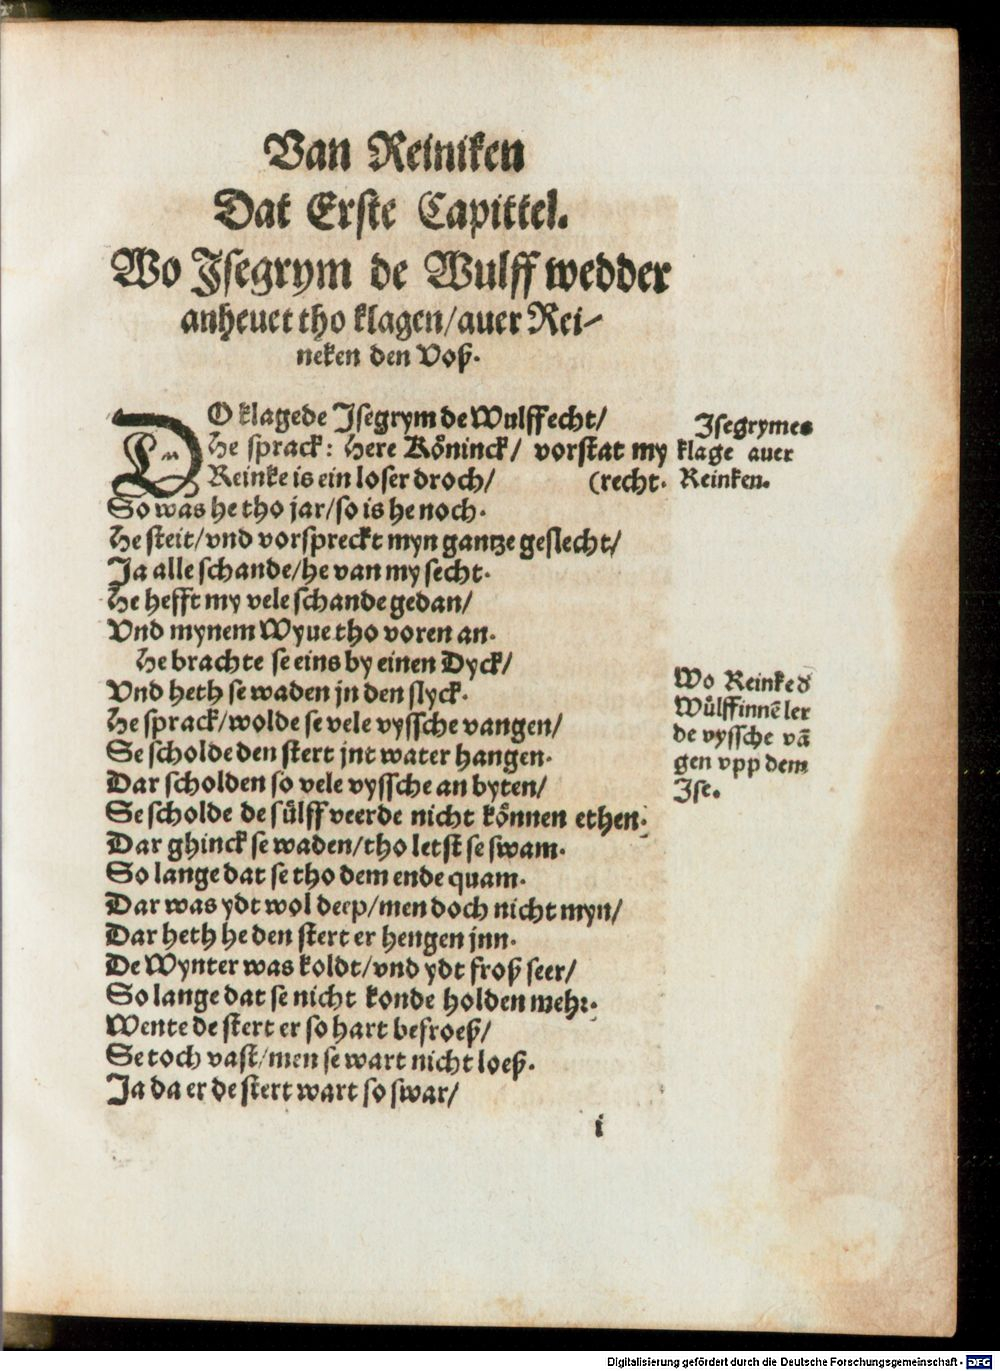 Van Reiniken
Dat Erste Capittel.
Wo Jsegrym de Wulff wedder
anhevet tho klagen/ aver Rei-
neken den Voß.
DO klagede Jsegrym de Wulff echt/
He sprack: Here Köninck/ vorstat my
Reinke is ein loser droch/ (recht.
Jsegrymes
klage aver
Reinken.
So was he tho jar/ so is he noch.
He steit/ vnd vorspreckt myn gantze geslecht/
Ja alle schande/ he van my secht.
He hefft my vele schande gedan/
Vnd mynem Wyue tho voren an.
He brachte se eins by einen Dyck/
Vnd heth se waden jn den slyck.
He sprack/ wolde se vele vyssche vangen/
Se scholde den stert jnt water hangen.
Dar scholden so vele vyssche an byten/
Se scholde de sülff veerde nicht können ethen.
Wo Reinke d
Wülffinnē ler
de vyssche vā
gen vpp dem
Jse.
Dar ghinck se waden/ tho letst se swam.
So lange dat se tho dem ende quam.
Dar was ydt wol deep/ men doch nicht myn/
Dar heth he den stert er hengen jnn.
De Wynter was koldt/ vnd ydt froß seer/
So lange dat se nicht konde holden mehr.
Wente de stert er so hart befroeß/
Se toch vast/ men se wart nicht loeß.
Ja da er de stert wart so swar/
i
Digitalisierung gefördert durch die Deutsche Forschungsgemeinschaft - DFG